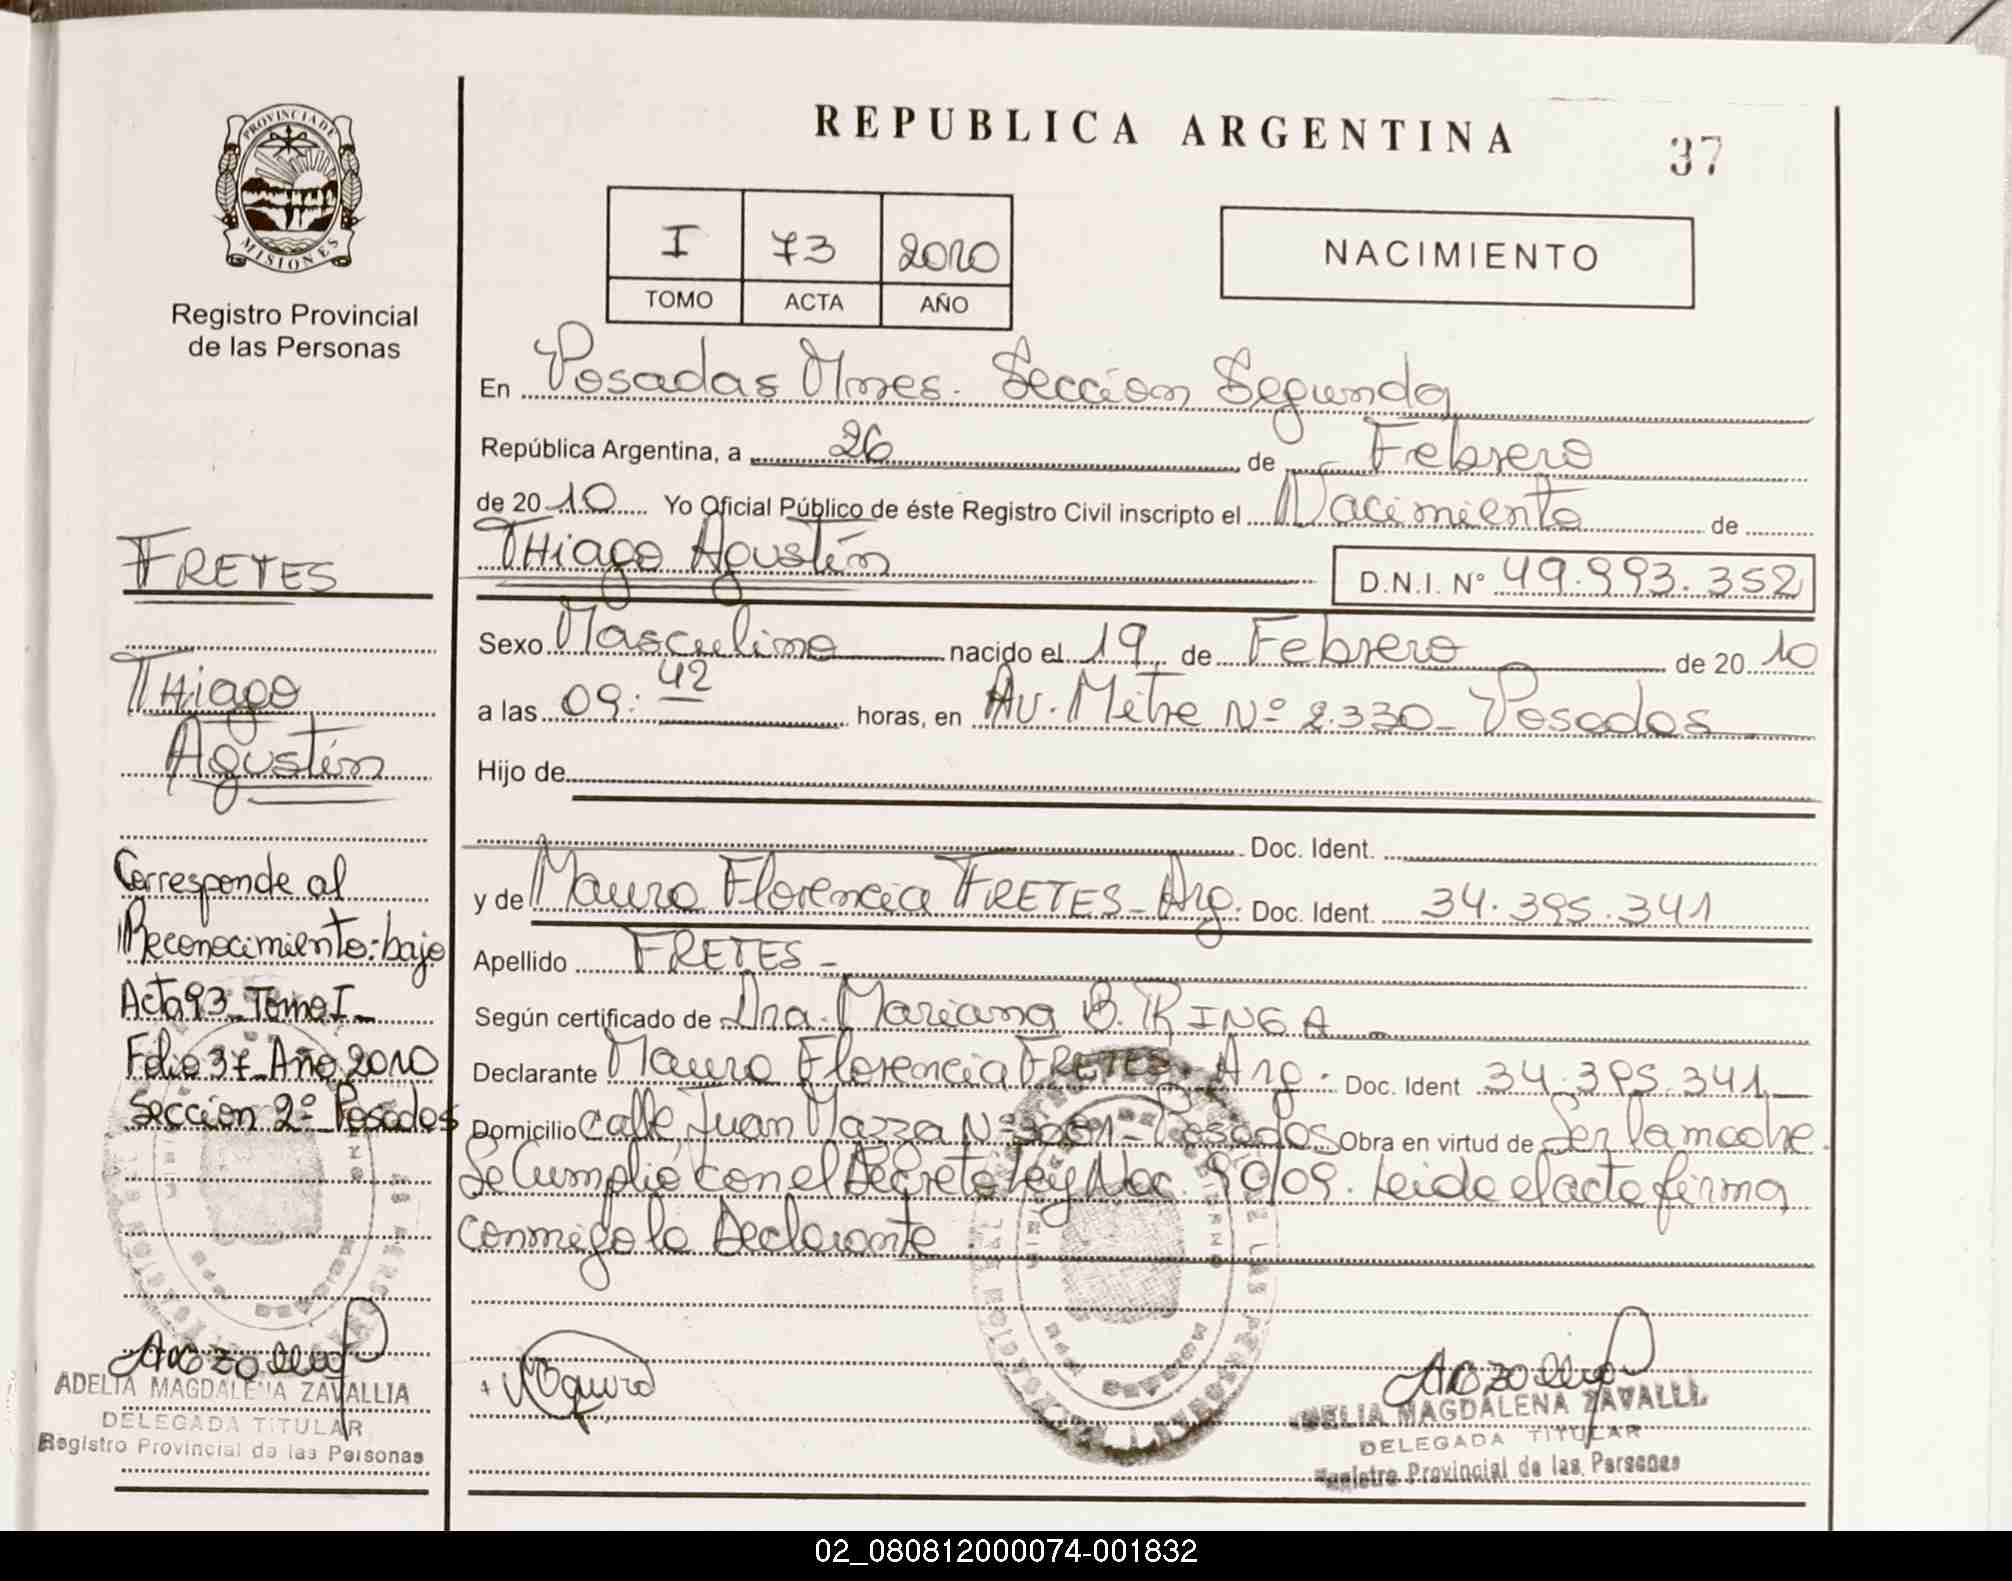 PROVINCIA DE
MISIONES
Registro Provincial
de las Personas
FRETES
Thiago
Agustín
Corresponde al
Reconocimiento: bajo
Acta 93_Tomo I_
Folio 37_Año 2010
Sección 2º_Posadas
ADELIA MAGDALENA ZAVALLIA
DELEGADA TITULAR
Registro Provincial de las Personas
REPUBLICA ARGENTINA
37
I 73 2010
TOMO ACTA AÑO
NACIMIENTO
En Posadas Mnes. Sección Segunda
República Argentina, a 26 de Febrero
de 2010 Yo Oficial Público de éste Registro Civil inscripto el Nacimiento de
Thiago Agustín D.N.I. Nº 49.993.352
Sexo Masculino nacido el 19 de Febrero de 2010
a las 09:42 horas, en Av. Mitre Nº 2.330_ Posadas
Hijo de
Doc. Ident.
y de Maura Florencia FRETES_ Arg. Doc. Ident. 34.395.341
Apellido FRETES_
Según certificado de Dra. Mariana B. RINGA_
Declarante Maura Florencia FRETES. Arg. Doc. Ident 34.395.341_
Domicilio calle Juan Mazza Nº _ Posadas Obra en virtud de Ser la madre.
Se Cumplió con el Decreto Ley Nac. 90/09. Leida el acta firma
conmigo la Declarante
ADELIA MAGDALENA ZAVALLI
DELEGADA TITULAR
Registro Provincial de las Personas
02_080812000074-001832